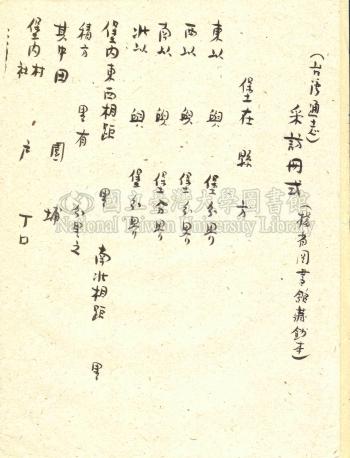 (台湾通志)
采訪冊式(據省図書館蔵鈔本)
堡在 縣 方
東以 與 堡分界
西以 與 堡分界
南以 與 堡分界
北以 與 堡分界
堡内東西相距 里 南北相距 里
積方 里有 分里之
其中田 園 埔
堡内村 社 , 户 丁口
國立臺灣大學圖書館
National Taiwan University Library